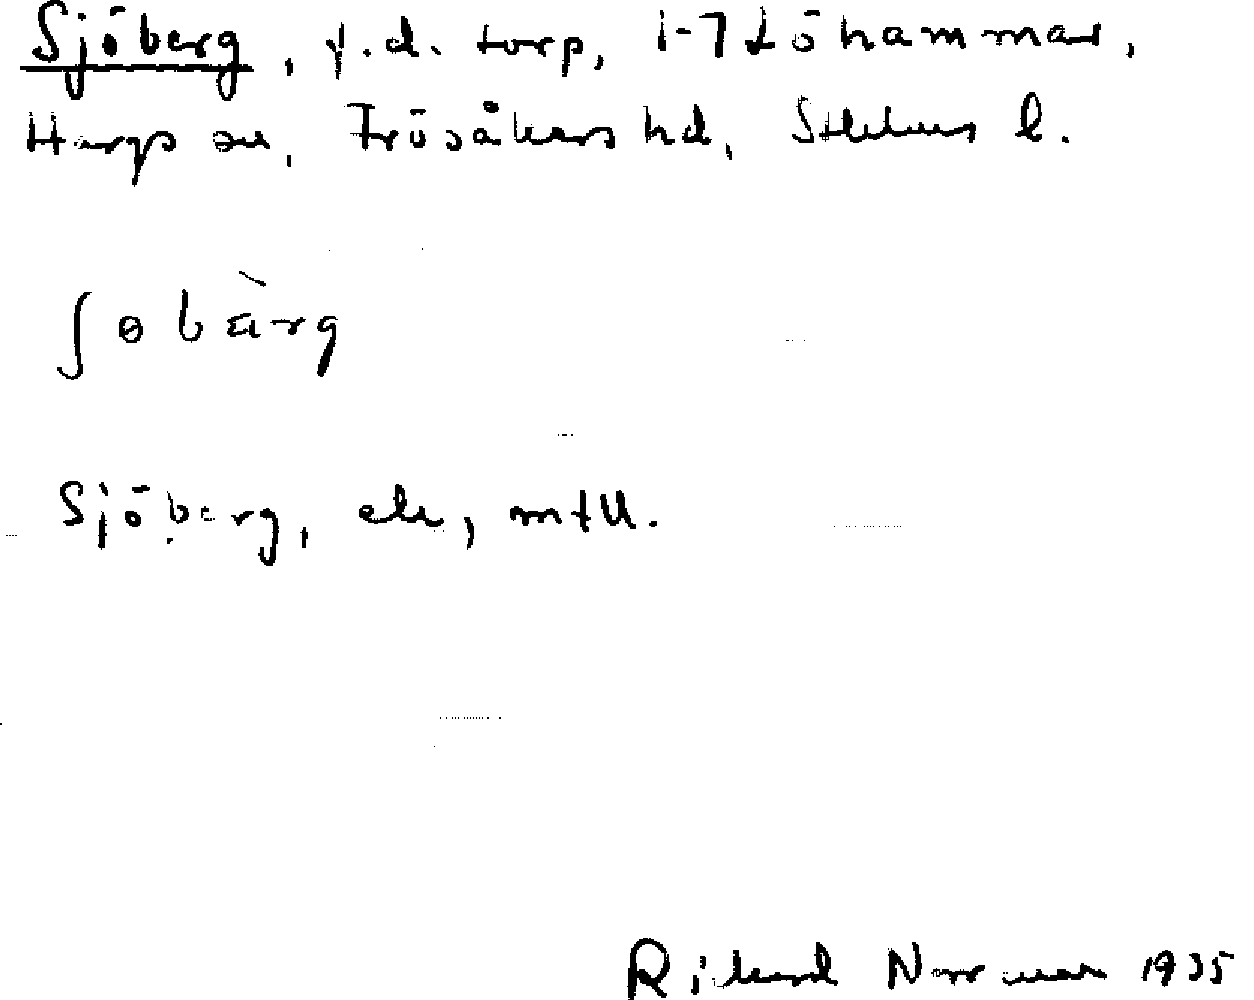 Sjöberg, f.d. torp, 1-7 Löhammar,
Hargs sn, Frösåkers hd, Sthlms l.
ʃɵbàrg
Sjöberg, ek, mtll.
Rikard Norrman 1935